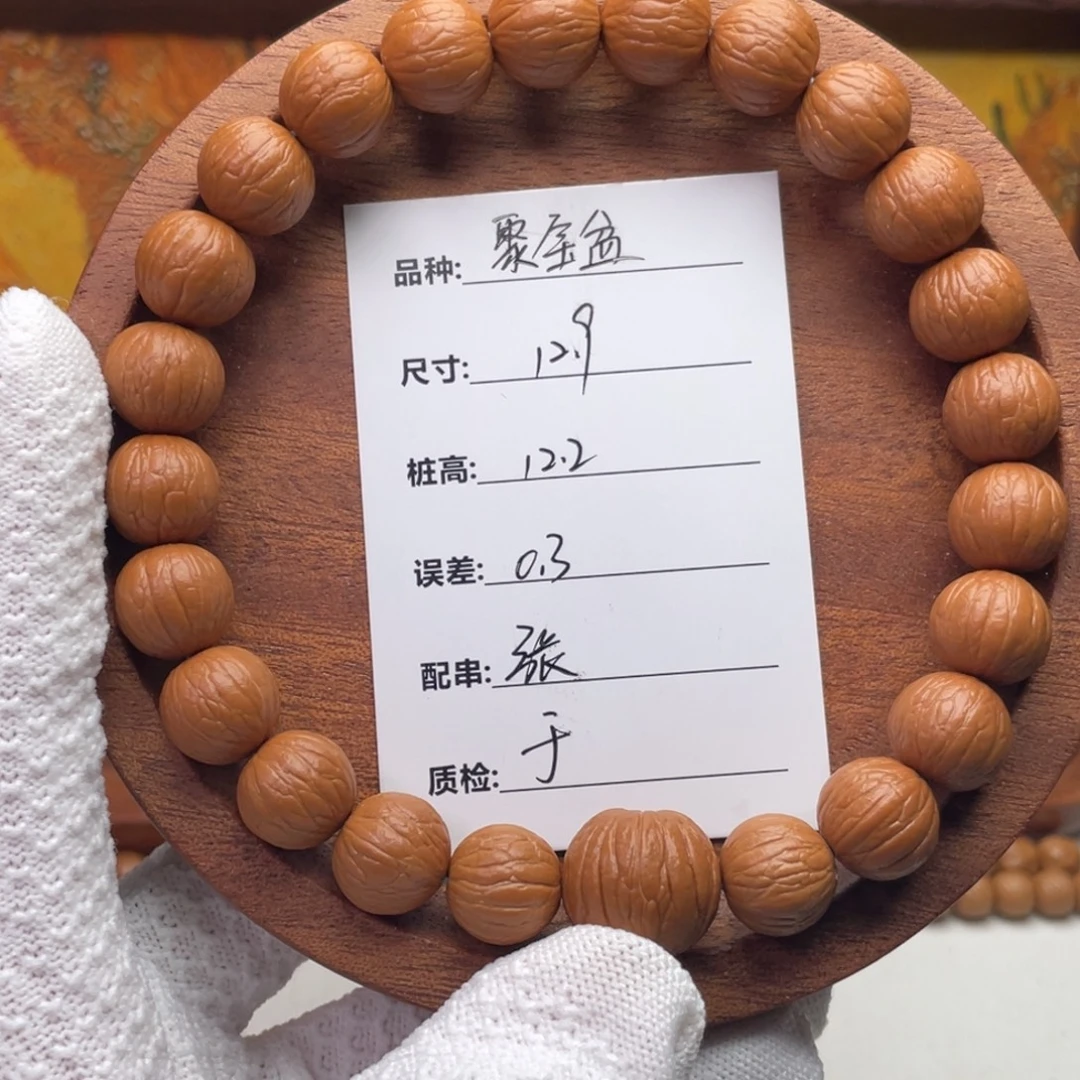 品种: 聚宝盆
尺寸: 12.9
桩高: 12.2
误差: 0.3
配串: 张
质检: 于